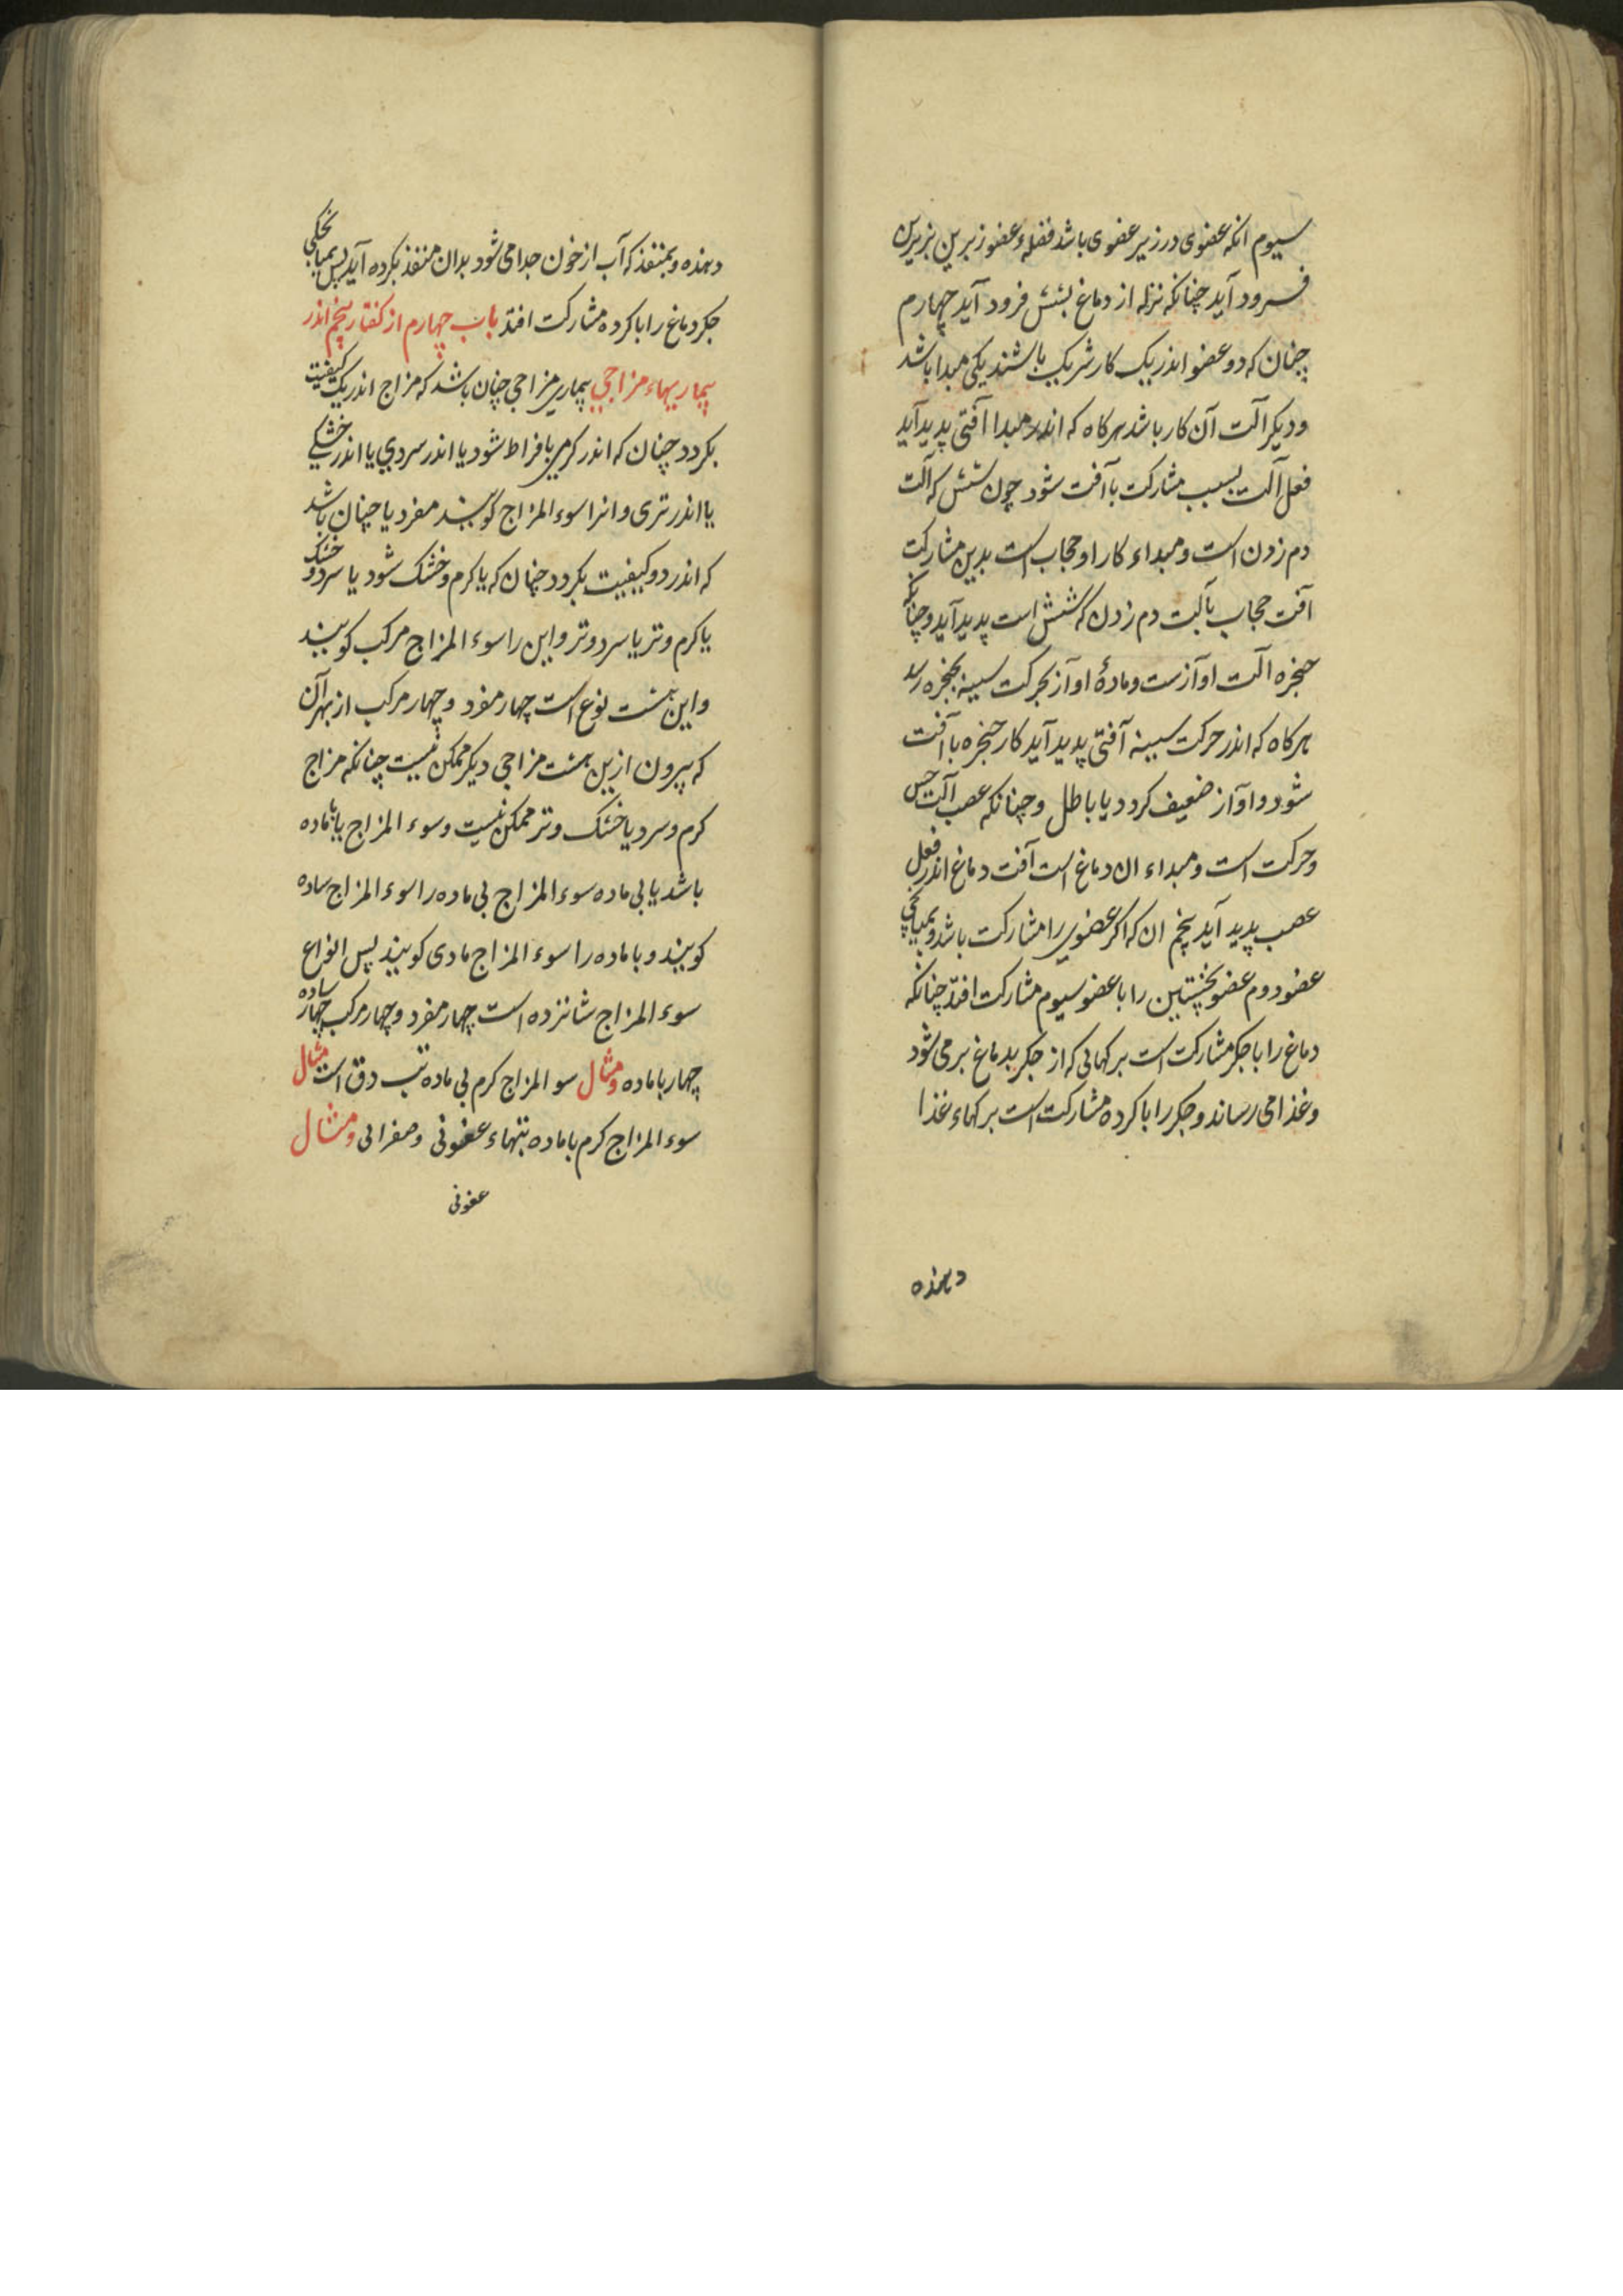 سیوم انکه عضوی در زیر عضوی باشد فضلهٔ عضو زبرین بزیرین
فرود آید چنانکه نزله از دماغ بشش فرود آید چهارم
چنان که دو عضو اندر یک کار شریک باشند یکی مبدا باشد
و دیکر الت آن کار باشد هرکاه که اندر مبدا آفتی پدید آید
فعل آلت بسبب مشارکت با آفت شود چون شش که آلت
دم زدن است و مبداء کار او حجاب است بدین مشارکت
آفت حجاب بآلت دم زدن که شش است پدید آید و چنانکه
حنجره الت اوآزست و مادهٔ اوآز بحرکت سینه بحنجره رسد
هرکاه که اندر حرکت سینه آفتی پدید آید کار حنجره با آفت
شود و اوآز ضعیف کردد یا باطل و چنانکه عصب آلت حس
و حرکت است و مبداء ان دماغ است آفت دماغ اندر فعل
عصب پدید آید پنجم ان که اکر عضوی را مشارکت باشد و بمیانجی
عضو دوم عضو نخپستین را با عضو سیوم مشارکت افتد چنانکه
دماغ را با جکر مشارکت است برکهائی که از جکر بدماغ بر می شود
و غذا می رساند و جکر را با کرده مشارکت است برکهاء غذا
دهنده
دهنده و بمنفذ که آب از خون جدا می شود بدان منفذ بکرده آید پس بمیانجکی
جکر دماغ را با کرده مشارکت افتد باب چهارم از کفتار پنجم اندر
بیماریهاء مزاجی بیماری مزاجی چنان باشد که مزاج اندر یک کیفیت
بکردد چنان که اندر کرمی بافراط شود یا اندر سردی یا اندر خشکی
یا اندر تری و انرا سوء المزاج کویند مفرد یا چنان باشد
که اندر دو کیفیت بکردد چنان که یا کرم و خشک شود یا سرد و خشک
یا کرم و تر یا سرد و تر و این را سوء المزاج مرکب کویند
و این هشت نوع است چهار مفرد و چهار مرکب از بهر آن
که بیرون ازین هشت مزاجی دیکر ممکن نیست چنانکه مزاج
کرم و سرد یا خشک و تر ممکن نیست و سوء المزاج یا با ماده
باشد یا بی ماده سوء المزاج بی ماده را سوء المزاج ساده
کویند و با ماده را سوء المزاج مادی کویند پس انواع
سوء المزاج شانزده است چهار مفرد و چهار مرکب چهار ساده
چهار با ماده و مثال سو المزاج کرم بی ماده تب دق است مثال
سوء المزاج کرم با ماده تبهاء عفونی و صفرائی و مثال
عفونی